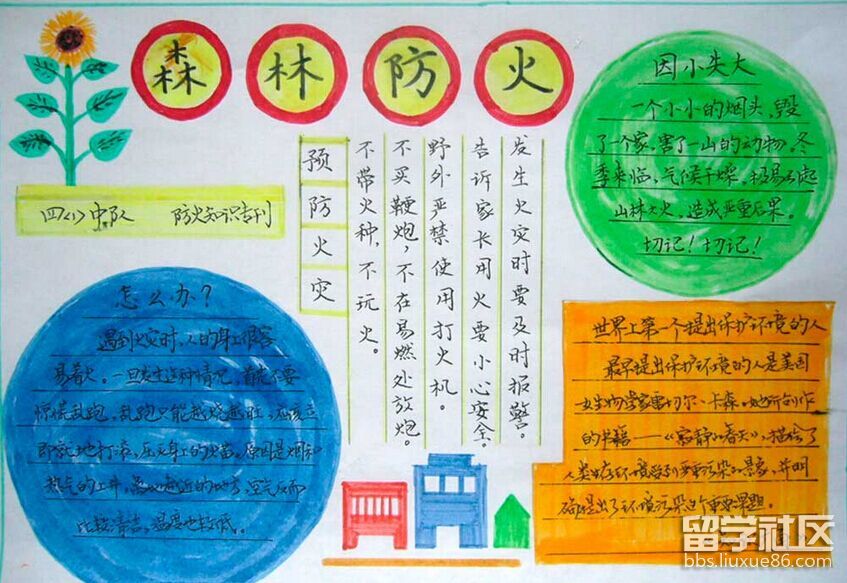 森林防火
四(1)中队 防火知识专刊
预防火灾
不带火种,不玩火。
不买鞭炮,不在易燃处放炮。
野外严禁使用打火机。
告诉家长用火要小心安全。
发生火灾时要及时报警。
因小失大
一个小小的烟头,毁
了一个家,害了一山的动物。冬
季来临,气候干燥,极易引起
山林大火,造成严重后果。
切记!切记!
怎么办?
遇到火灾时,人的身上很容
易着火。一旦发生这种情况,首先不要
惊慌乱跑,乱跑只能越烧越旺,应该立
即就地打滚,压灭身上的火苗。原因是烟和
热气的上升,离地近的地方,空气反而
比较清洁,温度也较低。
世界上第一个提出保护环境的人
最早提出保护环境的人是美国
女生物学家雷切尔·卡森。她所创作
的书籍——《寂静的春天》,描绘了
人类生存环境受到严重污染的景象,并明
确提出了环境污染这个重要课题。
留学社区
bbs.liuxue86.com